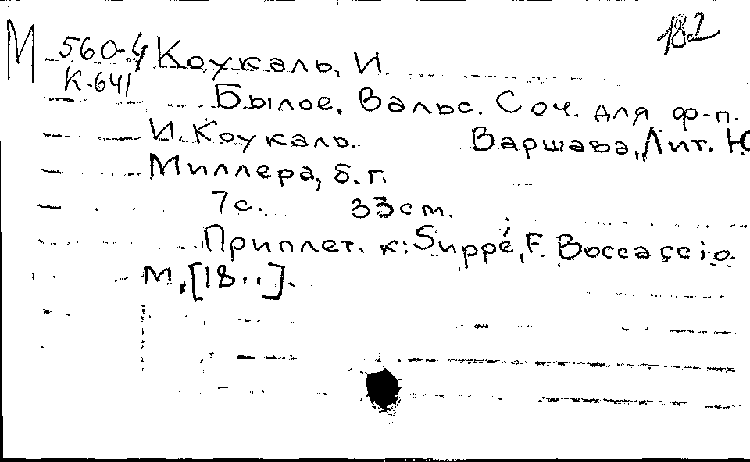 182
М 560-4 Коукаль, И.
К-641
Былое. Вальс. Соч. для ф-п.
И. Коукаль. Варшава, Лит. Ю
Миллера, б.г.
7с. 33см.
Приплет. к: Suppé, F. Boccaccio.
М., [18..].